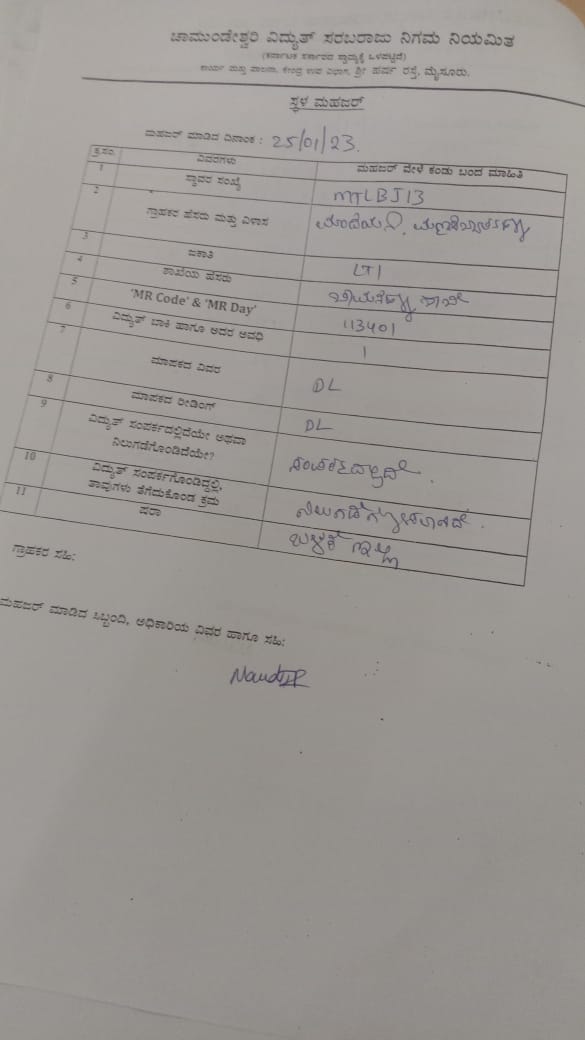 ಚಾಮುಂಡೇಶ್ವರಿ ವಿದ್ಯುತ್ ಸರಬರಾಜು ನಿಗಮ ನಿಯಮಿತ
(ಕರ್ನಾಟಕ ಸರ್ಕಾರದ ಸ್ವಾಮ್ಯಕ್ಕೆ ಒಳಪಟ್ಟಿದೆ)
ಕಾರ್ಯ ಮತ್ತು ಪಾಲನಾ, ಕೇಂದ್ರ ಉಪ ವಿಭಾಗ, ಶ್ರೀ ಹರ್ಷ ರಸ್ತೆ, ಮೈಸೂರು.
ಸ್ಥಳ ಮಹಜರ್
ಮಹಜರ್ ಮಾಡಿದ ದಿನಾಂಕ : 25/01/23.
ಕ್ರ.ಸಂ. ವಿವರಗಳು ಮಹಜರ್ ವೇಳೆ ಕಂಡು ಬಂದ ಮಾಹಿತಿ
1 ಸ್ಥಾವರ ಸಂಖ್ಯೆ MTLBJ13
2 ಗ್ರಾಹಕರ ಹೆಸರು ಮತ್ತು ವಿಳಾಸ
3 ಜಕಾತಿ LT1
4 ಶಾಖೆಯ ಹೆಸರು
5 'MR Code' & 'MR Day' 113401
6 ವಿದ್ಯುತ್ ಬಾಕಿ ಹಾಗೂ ಅದರ ಅವಧಿ 1
7 ಮಾಪಕದ ವಿವರ DL
8 ಮಾಪಕದ ರೀಡಿಂಗ್ DL
9 ವಿದ್ಯುತ್ ಸಂಪರ್ಕದಲ್ಲಿದೆಯೇ ಅಥವಾ
ನಿಲುಗಡೆಗೊಂಡಿದೆಯೇ? ಸಂಪರ್ಕದಲ್ಲಿದೆ.
10 ವಿದ್ಯುತ್ ಸಂಪರ್ಕಗೊಂಡಿದ್ದಲ್ಲಿ,
ತಾವುಗಳು ತೆಗೆದುಕೊಂಡ ಕ್ರಮ
11 ಷರಾ ಬಳಕೆ ಇಲ್ಲ
ಗ್ರಾಹಕರ ಸಹಿ:
ಮಹಜರ್ ಮಾಡಿದ ಸಿಬ್ಬಂದಿ, ಅಧಿಕಾರಿಯ ವಿವರ ಹಾಗೂ ಸಹಿ: